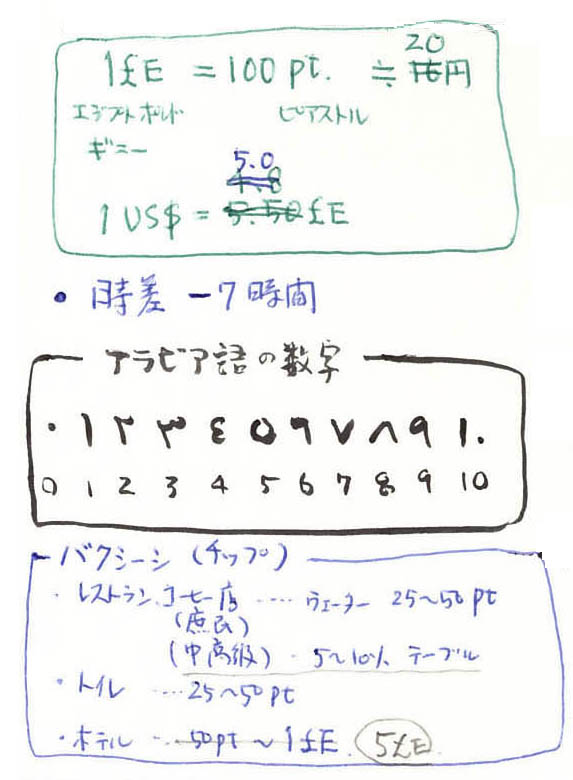 1£E = 100 pt. ≒ 20円
エジプトポンド ピアストル
ギニー
5.0
4.8
1 US$ = 5.50 £E
• 時差 −7時間
アラビア語の数字
٠ ١ ٢ ٣ ٤ ٥ ٦ ٧ ٨ ٩ ١٠
0 1 2 3 4 5 6 7 8 9 10
バクシーシ (チップ)
・レストラン、コーヒー店 ‥‥ ウェーター 25~50 pt
(庶民)
(中高級) ・ 5~10% テーブル
・トイレ ‥‥ 25~50 pt
・ホテル ‥ 50pt ~ 1£E. 5£E